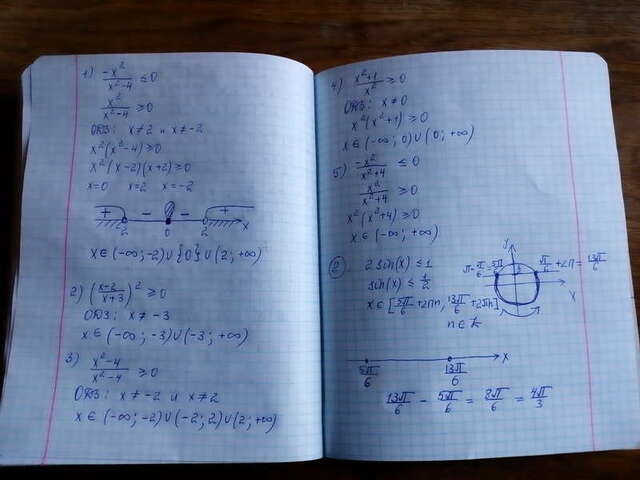 1) -x²/(x²-4) ≤ 0
x²/(x²-4) ≥ 0
ОДЗ: x≠2 и x≠-2
x²(x²-4) ≥ 0
x²(x-2)(x+2) ≥ 0
x=0 x=2 x=-2
+ - - +
-2 0 2 x
x ∈ (-∞; -2) ∪ {0} ∪ (2; +∞)
2) ((x-2)/(x+3))² ≥ 0
ОДЗ: x≠-3
x ∈ (-∞; -3) ∪ (-3; +∞)
3) (x²-4)/(x²-4) ≥ 0
ОДЗ: x≠-2 и x≠2
x ∈ (-∞; -2) ∪ (-2; 2) ∪ (2; +∞)
4) (x²+1)/x² ≥ 0
ОДЗ: x≠0
x²(x²+1) ≥ 0
x ∈ (-∞; 0) ∪ (0; +∞)
5) -x²/(x²+4) ≤ 0
x²/(x²+4) ≥ 0
x²(x²+4) ≥ 0
x ∈ (-∞; +∞)
② 2 sin(x) ≤ 1
sin(x) ≤ 1/2
x ∈ [5π/6 + 2πn, 13π/6 + 2πn]
n ∈ Z
y
π - π/6 = 5π/6
π/6 + 2π = 13π/6
x
5π/6 13π/6 x
13π/6 - 5π/6 = 8π/6 = 4π/3